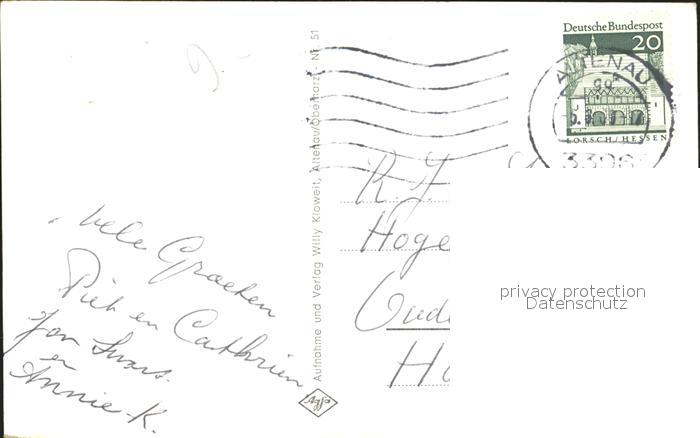 Deutsche Bundespost
20
ALTENAU
LORSCH/HESSEN
3396
Aufnahme und Verlag Willy Kloweit, Altenau/Oberharz - Nr. 51
Agfa
vele Groeten
Piet en Cathrien
Jan
en
Annie. K.
R. J.
Hoge
Oude
H
privacy protection
Datenschutz